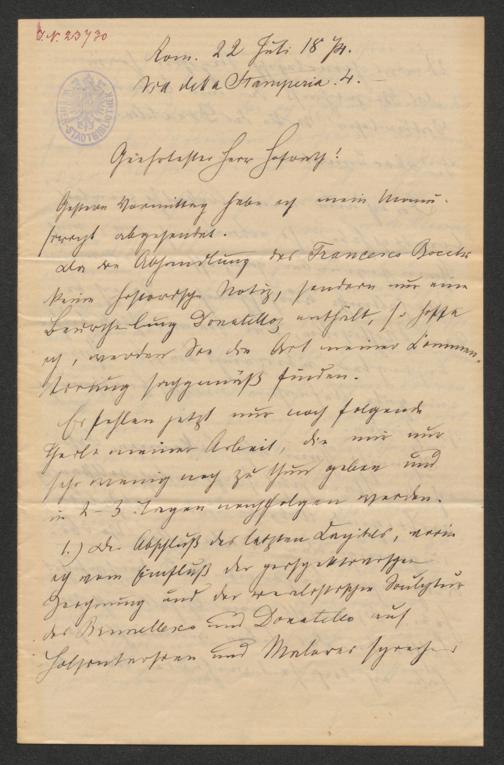 J.N. 23730
WIENER STADTBIBLIOTHEK
Rom. 22 Juli 1874.
Via della Stamperia. 4.
Geehrtester Herr Hofrath!
Gestern Vormittag habe ich mein Manu-
script abgesendet.
Da die Abhandlung des Francesco Bocchi
keine historische Notiz, sondern nur eine
Beurtheilung Donatellos enthält, so hoffe
ich, werden Sie die Art meiner Commen-
tirung sachgemäß finden.
Es fehlen jetzt nur noch folgende
Theile meiner Arbeit, die mir nur
sehr wenig noch zu thun geben und
in 2-3 Tagen nachfolgen werden.
1.) Der Abschluß des letzten Capitels, worin
ich vom Einfluß der perspektivischen
Zeichnung und der realistischen Sculptur
des Brunellesco und Donatello auf
und Malerei spreche;